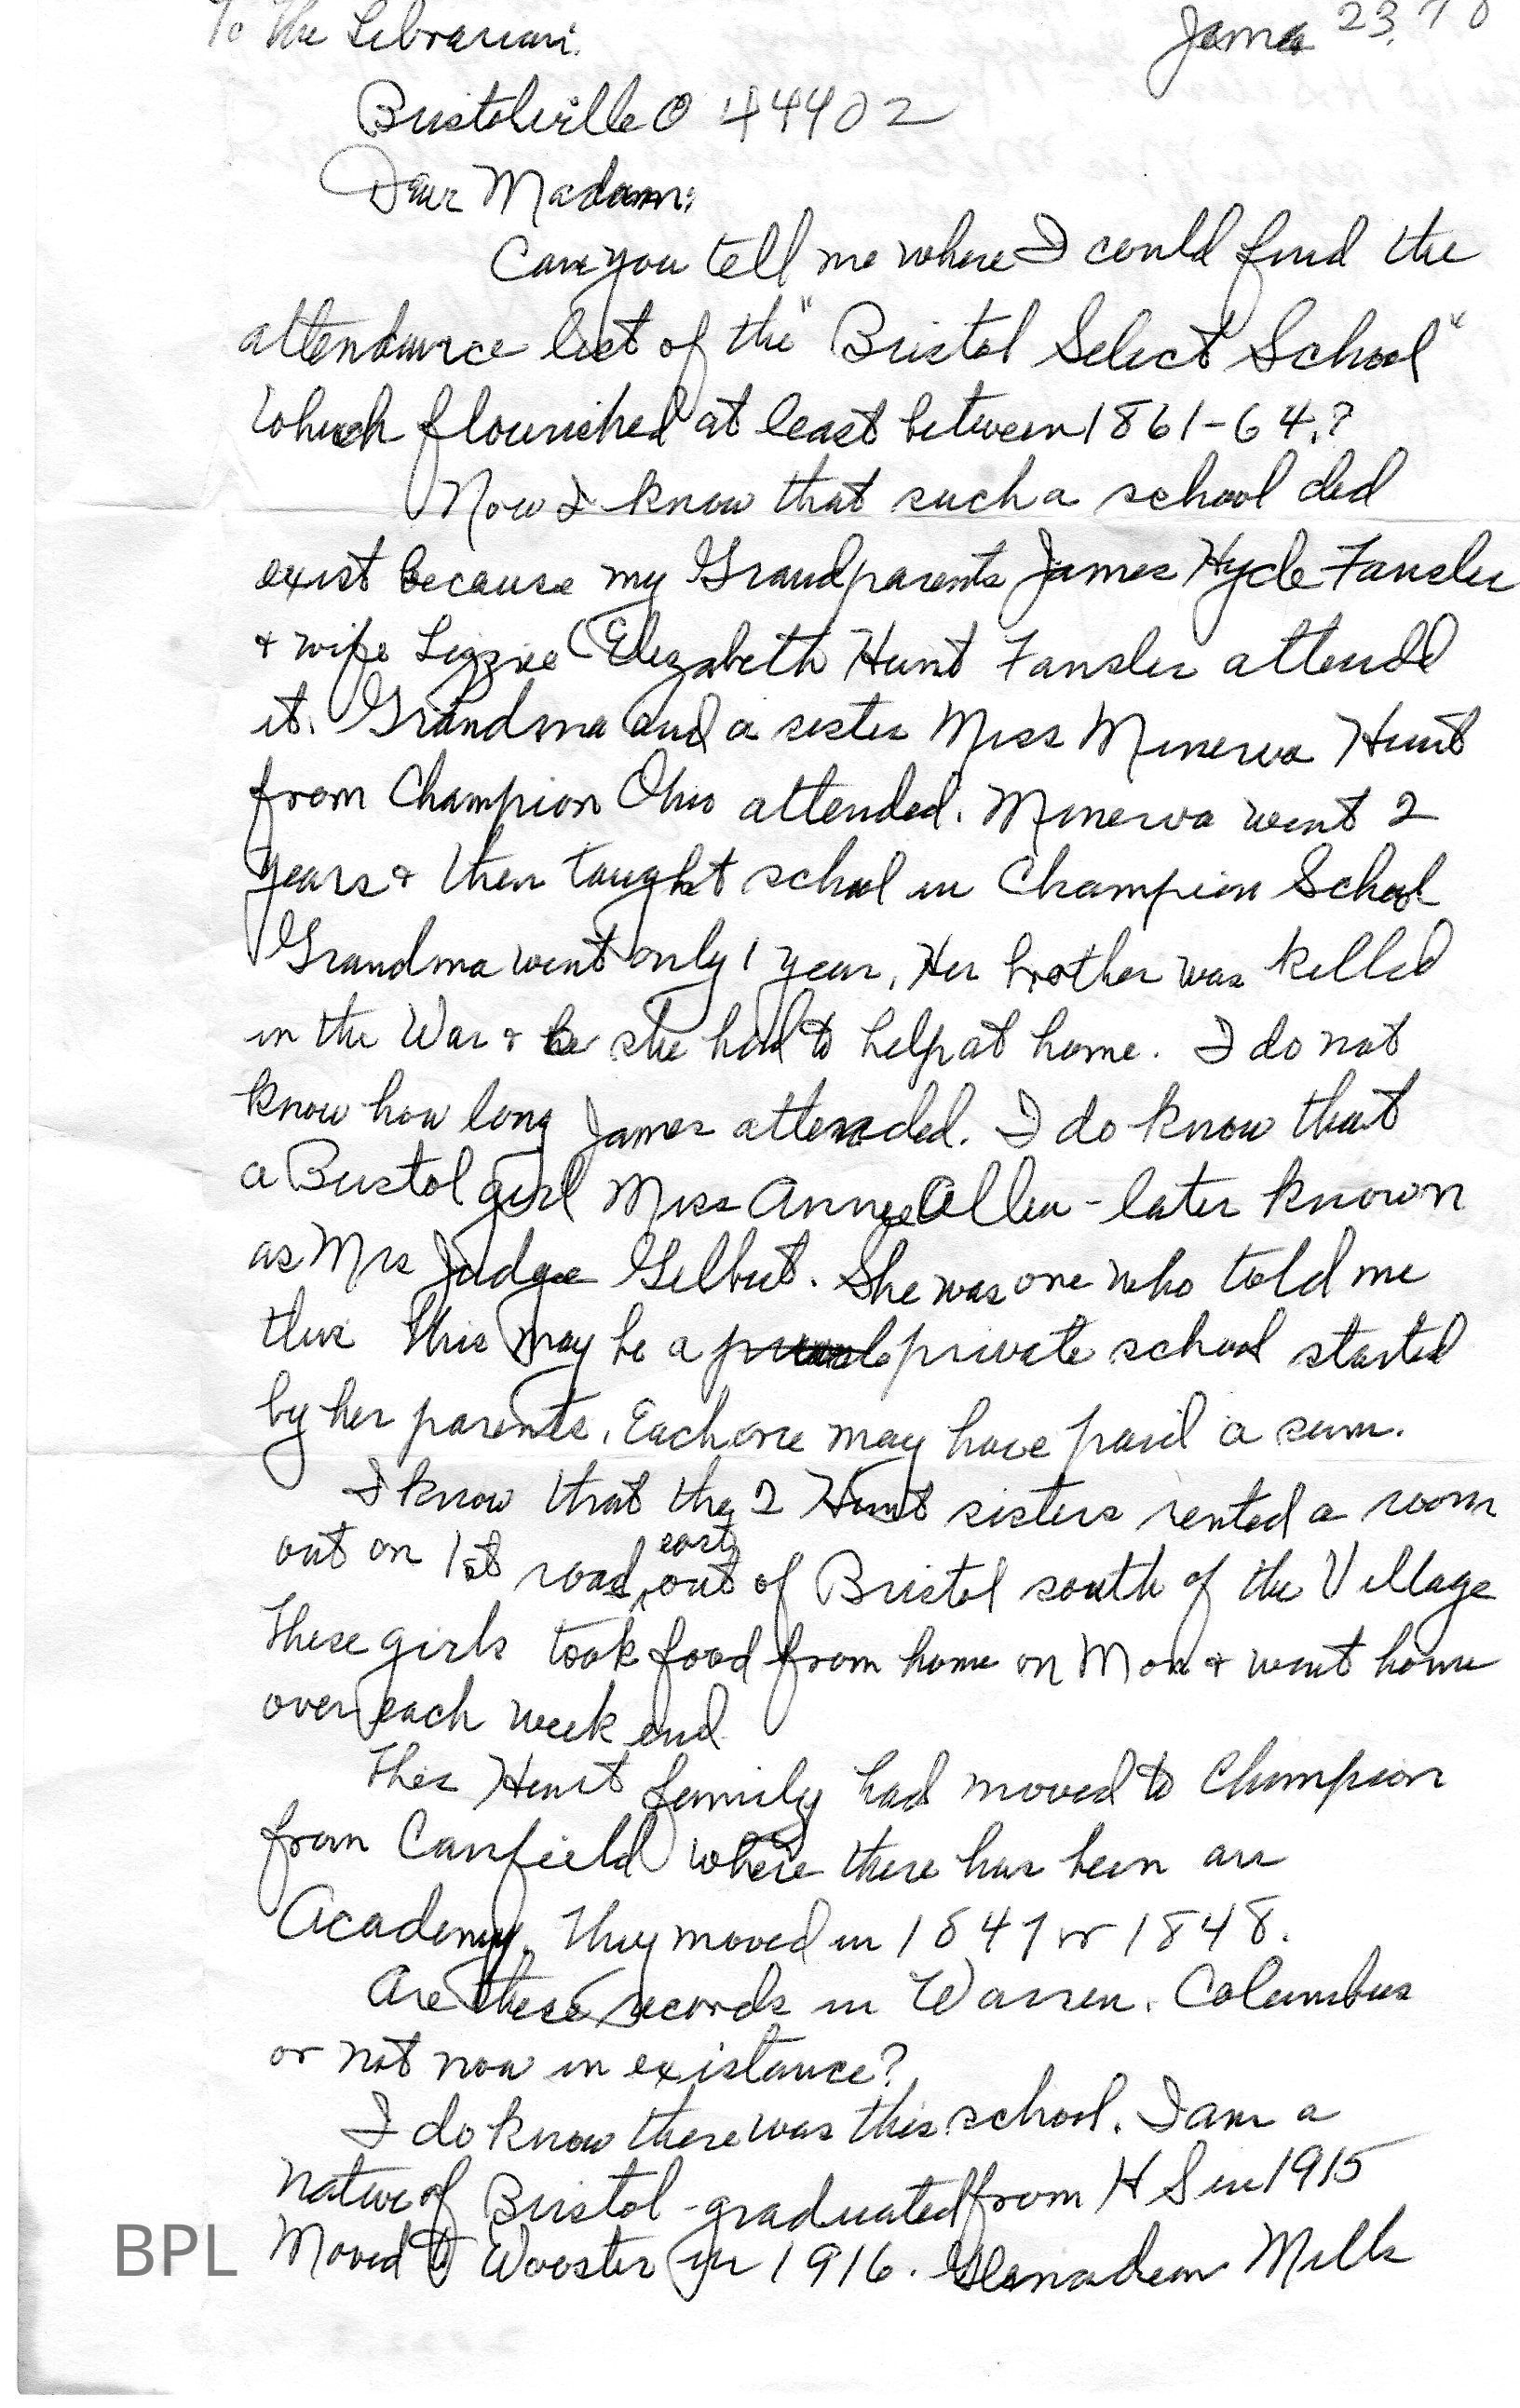 To the Librarian.
23, 70
Bristolville O 44402
Dear Madam:
Can you tell me where I could find the
attendance list of the "Bristol Select School"
which flourished at least between 1861-64.?
Now I know that such a school did
exist because my Grandparents James Hyde Fansler
& wife Lizzie (Elizabeth Hunt Fansler attend
it. Grandma and a sister Miss Minerva Hunt
from Champion Ohio attended. Minerva went 2
years & then taught school in Champion School
Grandma went only 1 year. Her brother was killed
in the War & she had to help at home. I do not
know how long James attended. I do know that
a Bristol girl Miss Anne Allen - later known
as Mrs Judge Gilbert. She was one who told me
this This may be a private school started
by her parents. Each one may have paid a sum.
I know that the 2 Hunt sisters rented a room
out on 1st road, east out of Bristol south of the Village
These girls took food from home on Mon & went home
over each week end
This Hunt family had moved to Champion
from Canfield where there has been an
Academy. They moved in 1847 or 1848.
Are these records in Warren. Columbus
or not now in existance?
I do know there was this school. I am a
native of Bristol - graduated from H S in 1915
Moved to Wooster in 1916. Glenadean Mills
BPL